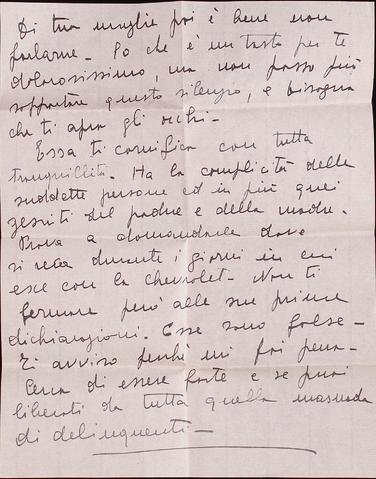 Di tua moglie poi è bene non
parlarne - So che è un tasto per te
dolorosissimo, ma non posso più
sopportare questo silenzio, e bisogna
che ti apra gli occhi -
Essa ti cornifica con tutta
tranquillità. Ha la complicità delle
suddette persone ed in più quei
del padre e della madre.
Prova a domandarle dove
si reca durante i giorni in cui
esce con la Chevrolet - Non ti
fermare però alle sue prime
dichiarazioni. Esse sono false -
Ti avviso perché mi fai pena -
Cerca di essere forte e se puoi
liberati da tutta quella masnada
di delinquenti -